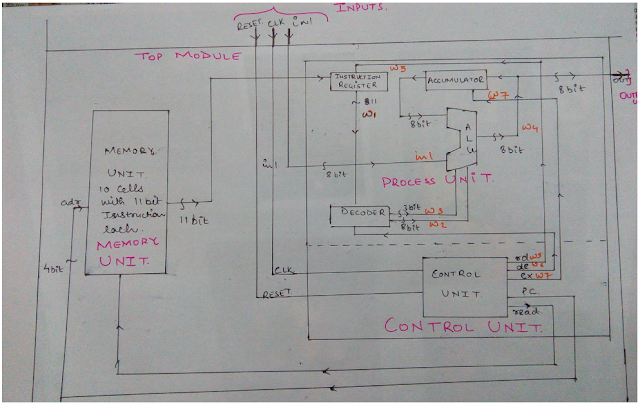 INPUTS.
RESET. CLK in1
TOP MODULE
W5
INSTRUCTION
REGISTER
ACCUMULATOR
W7
8bit
out
11
W1
8bit
A
L
U
W4
8bit
MEMORY
UNIT.
10 Cells
with 11bit
Instruction
Each.
in1
8bit
in1
PROCESS UNIT.
adr
11bit
MEMORY
UNIT.
DECODER
3bit W3
8bit W2
4bit
CLK
RESET.
CONTROL
UNIT
rd W5
de W6
ex W7
PC.
read.
CONTROL UNIT.